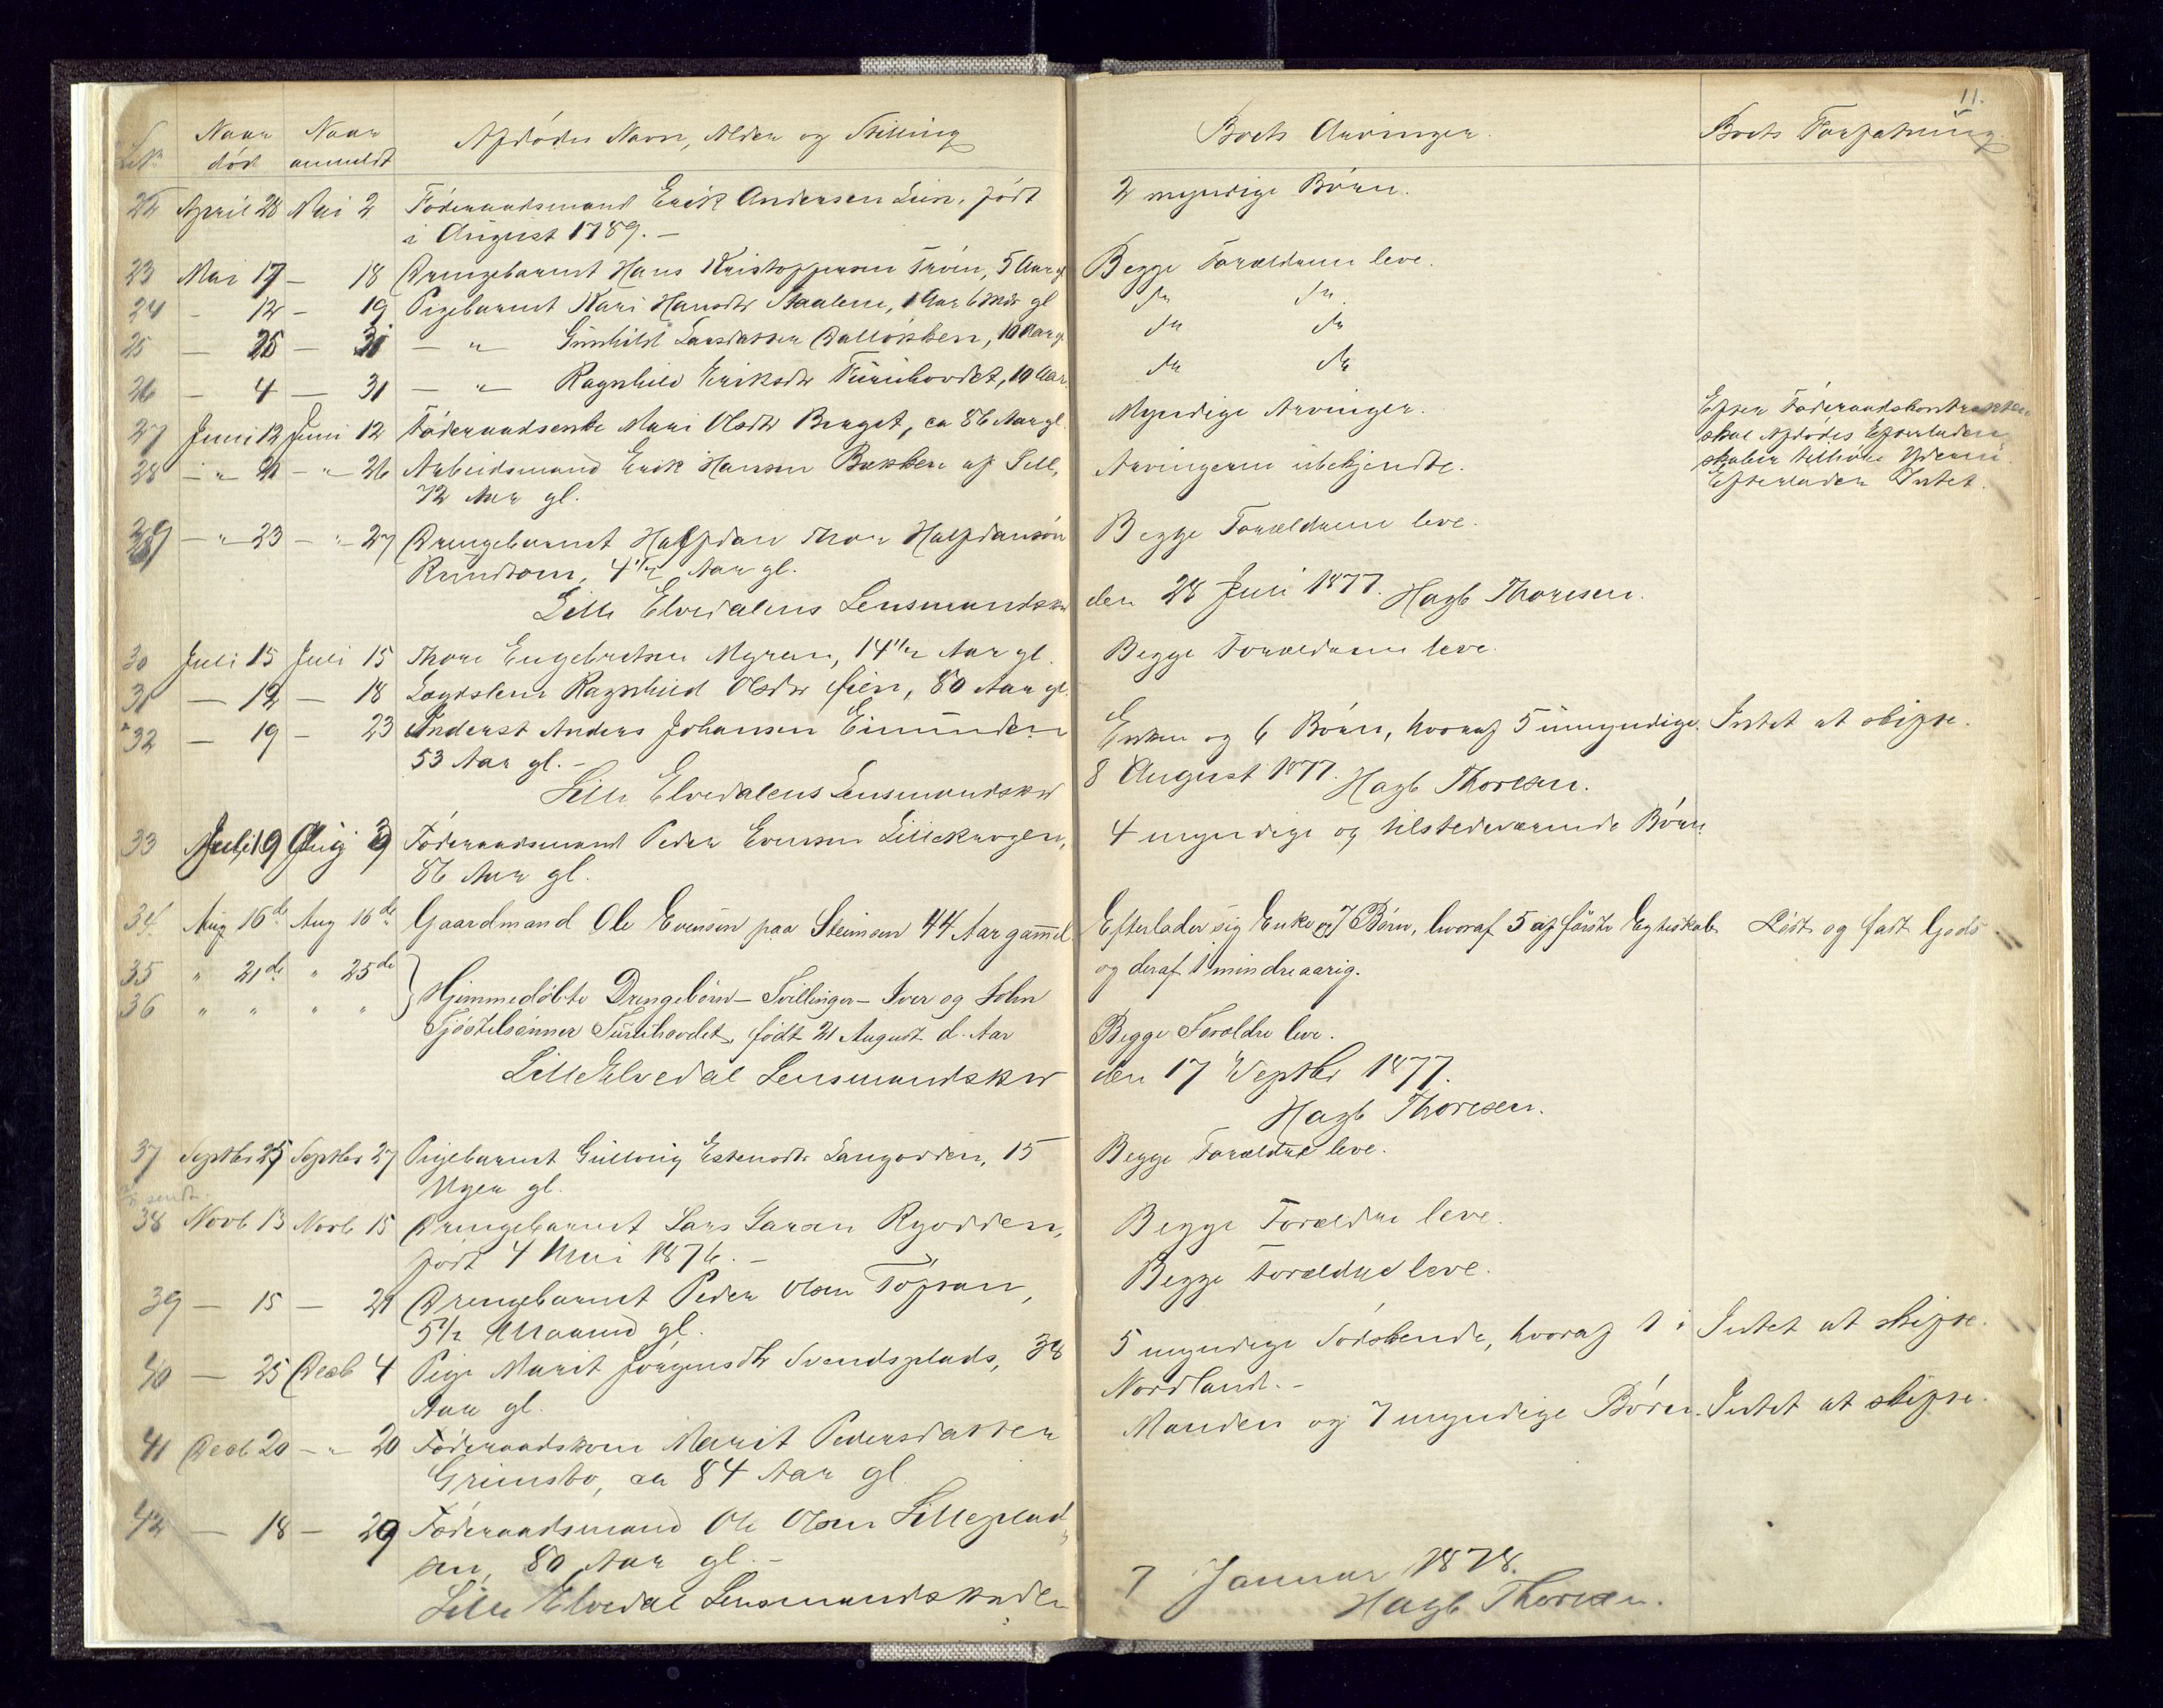 11.
Naar død Naar anmeldt Afdødes Navn, Alder og Stilling Boets Arvinger. Boets Forfatning
22 April 28 Mai 2 Føderaadsmand Erik Andersen Lien, født 2 myndige Børn.
i August 1789. –
23 Mai 17 – 18 Drengebarnet Hans Kristoffersen Trøen, 5 Aar gl Begge Forældrene leve.
24 – 12 – 19 Pigebarnet Kari Hansdtr 1 Aar 6 Mdr gl do do
25 – 25 – 31 – " – Gunhild Larsdatter 10 Aar gl do do
26 – 4 – 31 – " – Ragnhild Eriksdtr Turihovdet, 10 Aar. do do
27 Juni 12 Juni 12 Føderaadsenke Mari Olsdtr Berget, ca 86 Aar gl. Myndige Arvinger. Efter Føderaadskontrakten
skal Afdødes Efterladen
skaber tilhøre
28 – " – 21 – " – 26 Arbeidsmand Erik Hansen Bakken af Sell, Arvingerne ubekjendte. Efterlader Intet.
72 Aar gl.
29 – " – 23 – " – 27 Drengebarnet Halfdan Thor Halfdansøn Begge Forældrene leve.
4 1/2 Aar gl.
Lille Elvedalens Lensmandskr den 28 Juni 1877. Hagb Thoresen.
30 Juli 15 Juli 15 Thore Engebretsen Myren, 14 1/2 Aar gl. Begge Forældrene leve.
31 – 12 – 18 Lægdslem Ragnhild Olsdtr Lien, 80 Aar gl.
32 – 19 – 23 Inderst Anders Johansen Eimunden Enken og 6 Børn, hvoraf 5 umyndige. Intet at skifte.
53 Aar gl. –
Lille Elvedalens Lensmandskr 8 August 1877. Hagb Thoresen.
33 Juli 19 Aug 9 Føderaadsmand Peder Evensen Lillekrogen, 4 myndige og tilstedeværende Børn
86 Aar gl.
34. Aug 16de Aug 16de Gaardmand Ole Evensen paa Steimoen 44 Aar gammel Efterlader sig Enke og 7 Børn, hvoraf 5 af første Egteskab Løst og fast Gods
og deraf 1 mindreaarig.
35 " 21de " 25de
36 " " " " } Hjemmedøbte Drengebørn – Tvillinger – Iver og John
Tjøstelsønner Turihovdet, født 21 August d. Aar Begge Forældre leve.
Lille Elvedal Lensmandskr den 17 Septbr 1877.
Hagb Thoresen.
37 Septbr 25 Septbr 27 Pigebarnet Gullaug Estensdtr Langodden, 15 Begge Forældre leve.
Uger gl.
sendt.
38 Novb 13 Novb 15 Drengebarnet Lars Larsen Ryodden, Begge Forældre leve.
født 4 Mai 1876. –
39 – 15 – 21 Drengebarnet Peder Olsen Begge Forældre leve.
5 1/2 Maaned gl.
40 – 25 Decb 4 Pige Marit Jørgensdtr Svendsplads, 38 5 myndige Sødskende, hvoraf 1 i Intet at skifte.
Aar gl. Nordland. –
41 Decb 20 – " – 20 Føderaadskone Marit Pedersdatter Manden og 7 myndige Børn. Intet at skifte.
Grimsbo, ca 84 Aar gl.
42 – 18 – 29 Føderaadsmand Ole Olsen Lilleplad-
sen, 80 Aar gl. –
Lille Elvedal Lensmandskr den 7 Januar 1878.
Hagb Thoresen.